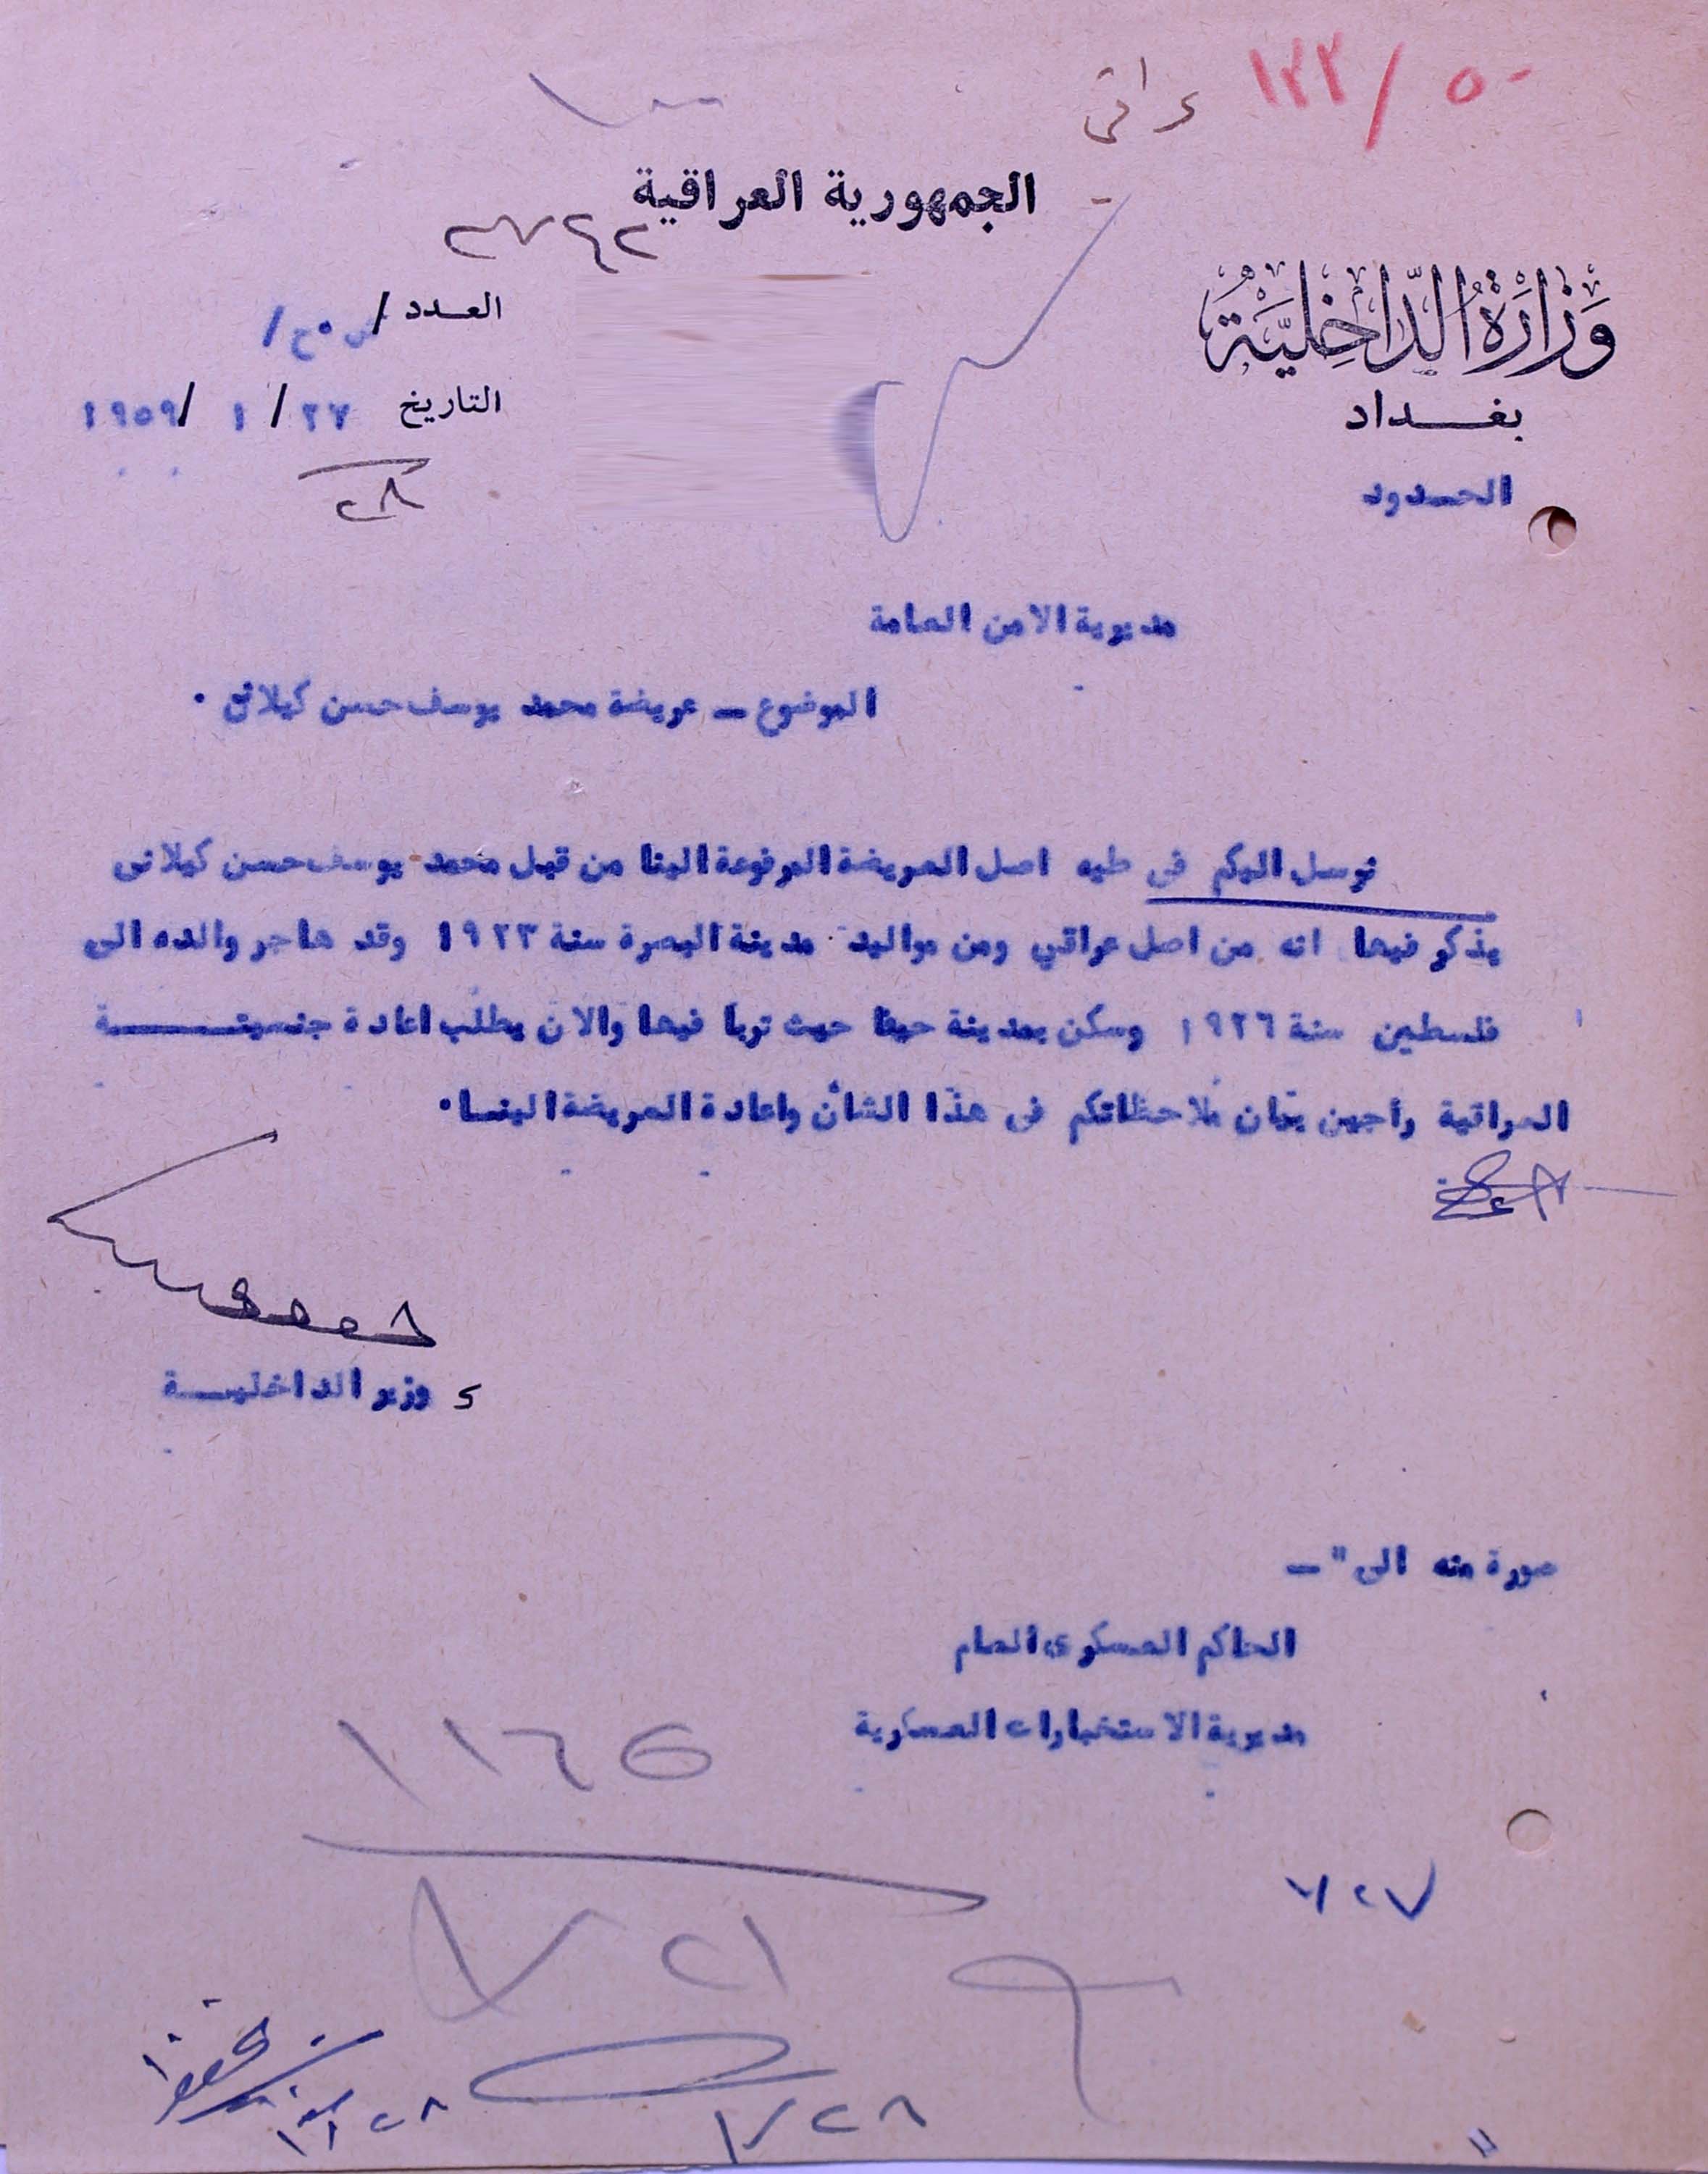 ٥٠ / ١٣٣
عراقي
الجمهورية العراقية
وَزَارَةُ الدَّاخِلِيَّة
بغـــداد
الحـدود
٢٧٤٢
العـدد / ش٠ح /
التاريخ ٢٧ / ١ / ١٩٥٩
٢٨
مديرية الامن العامة
الموضوع ــ عريضة محمد يوسف حسن كيلاني ٠
نرسل اليكم في طيه اصل العريضة المرفوعة الينا من قبل محمد يوسف حسن كيلاني
يذكر فيها انه من اصل عراقي ومن مواليد مدينة البصرة سنة ١٩٢٣ وقد هاجر والده الى
فلسطين سنة ١٩٢٦ وسكن بمدينة حيفا حيث تربا فيها والان يطلب اعادة جنسيتــــــــه
العراقية راجين بيان ملاحظاتكم في هذا الشأن واعادة العريضة الينـا٠
وزير الداخليـــة
صورة منه الى "ــ
الحاكم العسكري العام
مديرية الاستخبارات العسكرية
٧٢٧